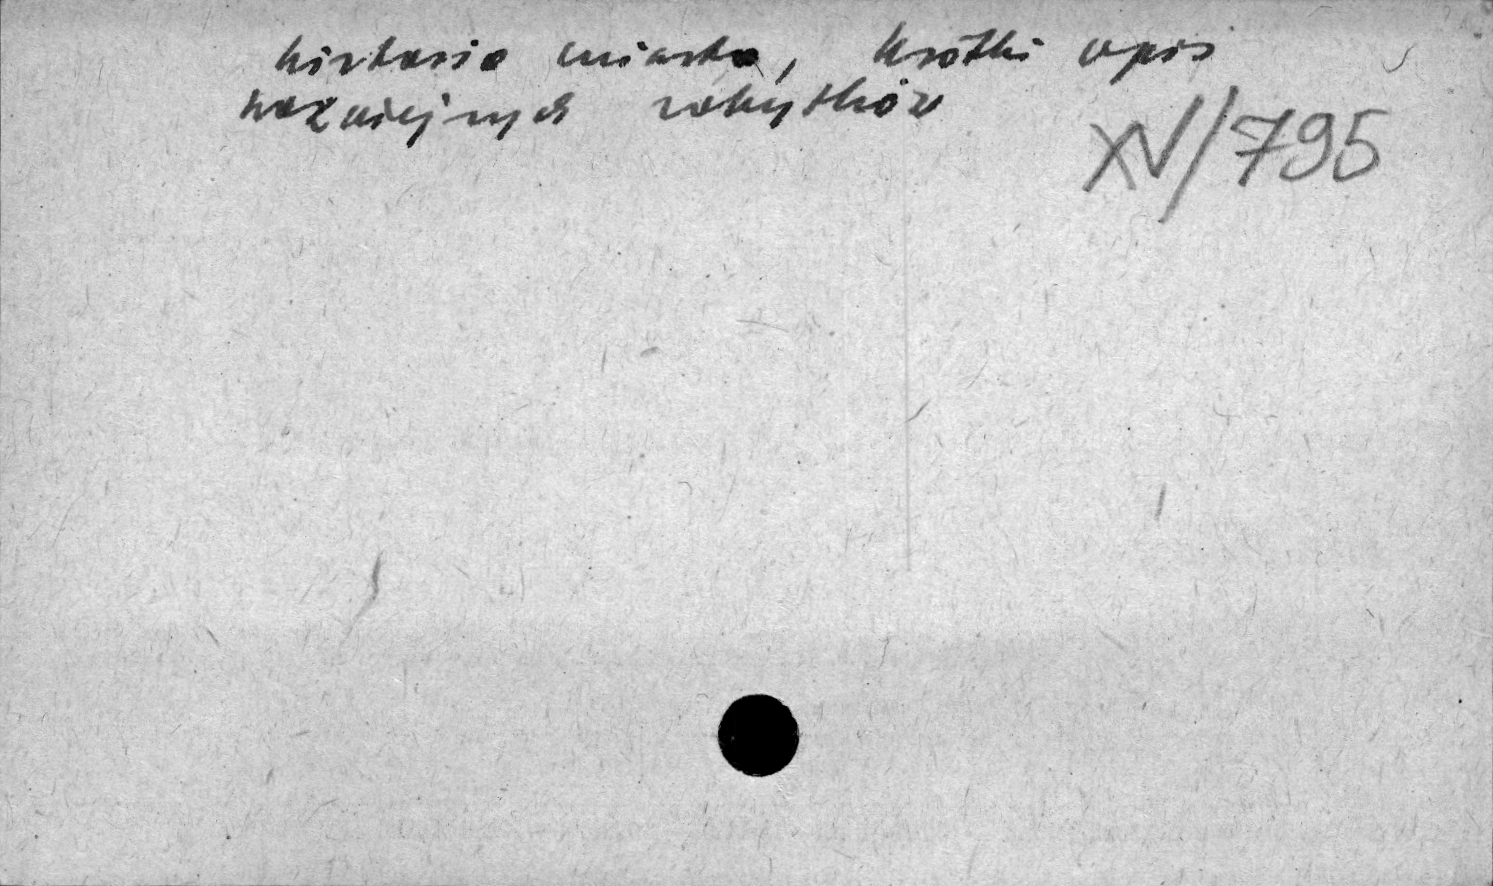 historia miasta, krótki opis
ważniejszych zabytków
XV/795